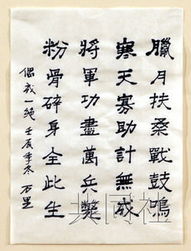 臘月扶桑戰鼓鳴
寒天寡助計無成
將軍功盡萬兵獎
粉骨碎身全此生
偶成一絶 壬辰季冬 石里